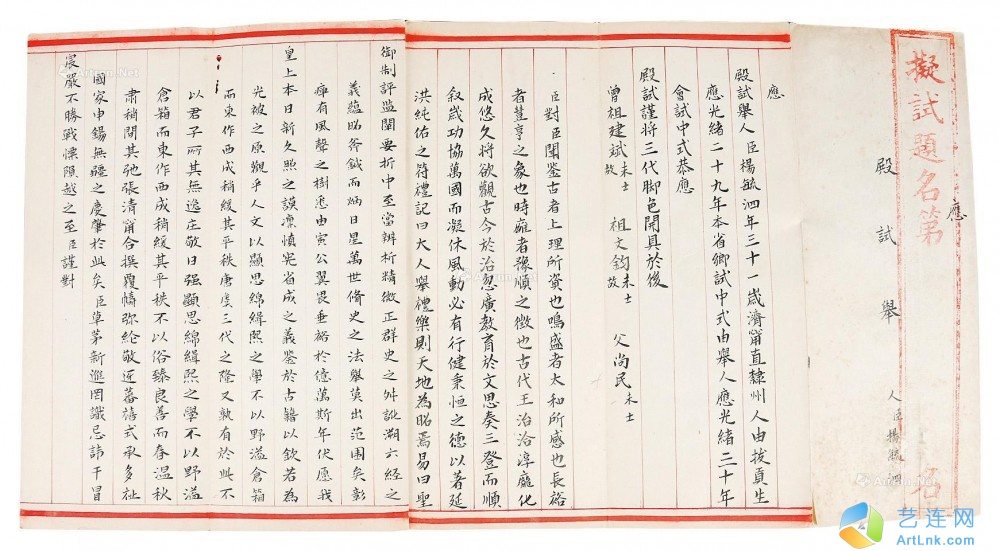 擬試題名第 名
應
殿試舉
人臣楊毓泗
應
殿試舉人臣楊毓泗年三十一歲濟甯直隸州人由拔貢生
應光緒二十九年本省鄉試中式由舉人應光緒三十年
會試中式恭應
殿試謹將三代脚色開具於後
曾祖建斌未士故 祖文鈞未士故 父尚民未士
臣對臣聞鑒古者上理所資也鳴盛者太和所感也長裕
者荳亨之象也時雍者豫順之徵也古代王治洽淳龐化
成悠久將欲觀古今於治忽廣教育於文思奏三登而順
敘歲功協萬國而凝休風動必有行健秉恒之德以著延
洪純佑之符禮記曰大人舉禮樂則天地為昭焉易曰聖
御制評鑒闡要折中至當辨析精微正群史之舛訛溯六經之
義蘊昭斧鉞而炳日星萬世脩史之法舉莫出范圍矣彰
癉有風聲之樹悉由寅公翼畏垂裕於億萬斯年伏願我
皇上本日新久照之謨凛慎憲省成之義鉴於古籍以欽若為
光被之原觀乎人文以顯思綿緝熙之學不以野溢倉箱
而東作西成稍緩其平秩唐虞三代之隆又孰有於與不
以君子所其無逸庄敬日强顯思綿緝熙之學不以野溢
倉箱而東作西成稍緩其平秩不以俗臻良善而春温秋
肅稍間其弛張清甯合撰覆幬弥綸敬迓蕃禧式承多祉
國家申錫無疆之慶肇於此矣臣草茅新進罔識忌諱干冒
宸嚴不勝戰慄隕越之至臣謹對
艺连网
ArtLnk.com